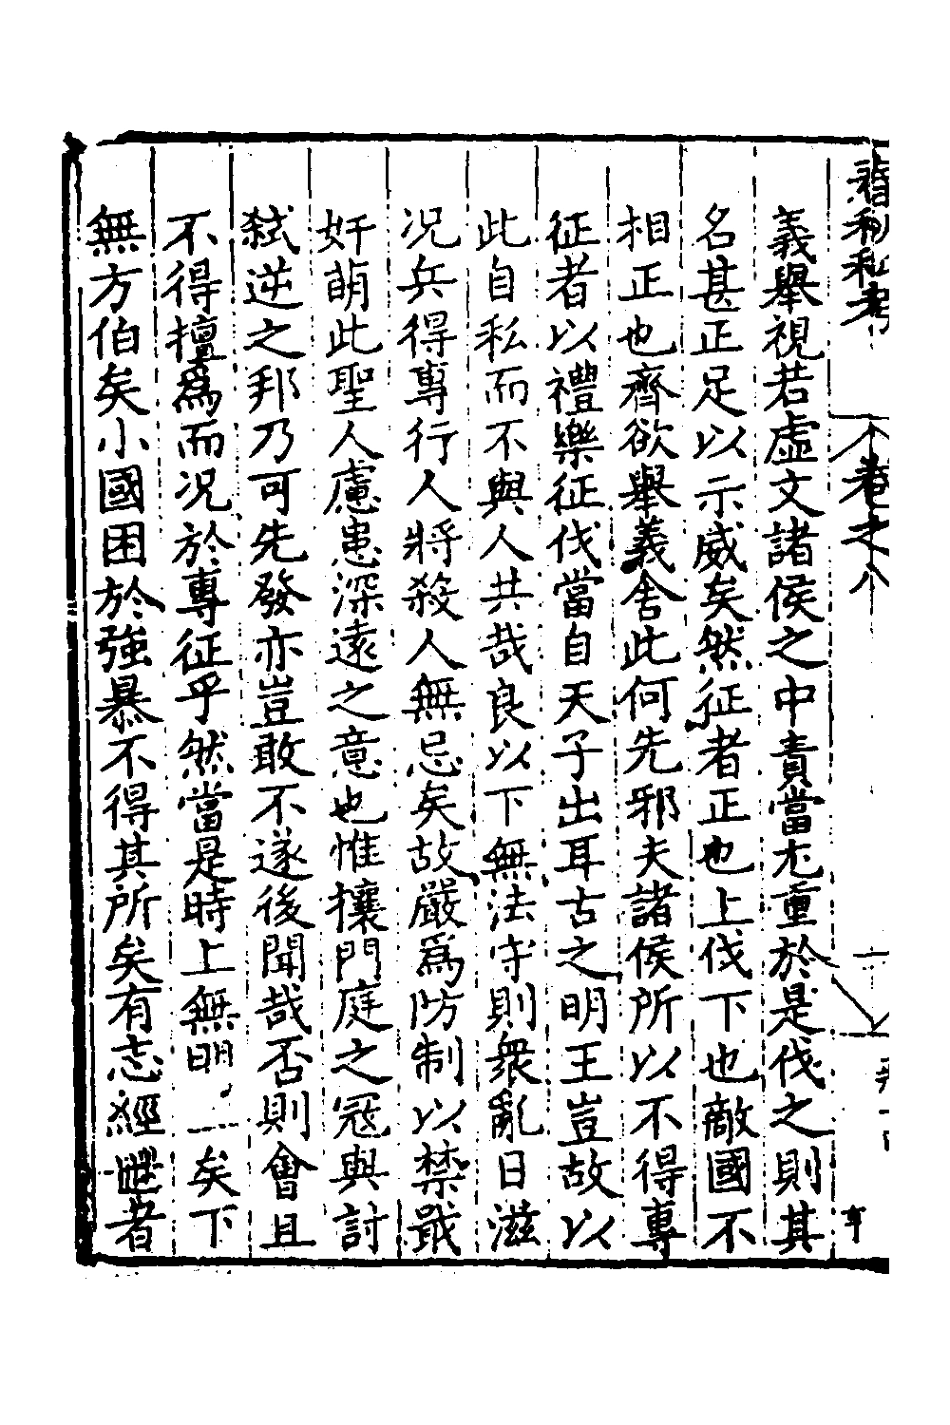 春秋私考
卷之八
義舉視若虛文諸侯之中責當尤重於是伐之則其
名甚正足以示威矣然征者正也上伐下也敵國不
相正也齊欲舉義舍此何先邪夫諸侯所以不得專
征者以禮樂征伐當自天子出耳古之明王豈故以
此自私而不與人共哉良以下無法守則衆亂日滋
况兵得專行人將殺人無忌矣故嚴爲防制以禁戢
奸萌此聖人慮患深遠之意也惟攘門庭之冦與討
弑逆之邦乃可先發亦豈敢不遂後聞哉否則會且
不得擅爲而况於專征乎然當是時上無明 矣下
無方伯矣小國困於強暴不得其所矣有志經 者